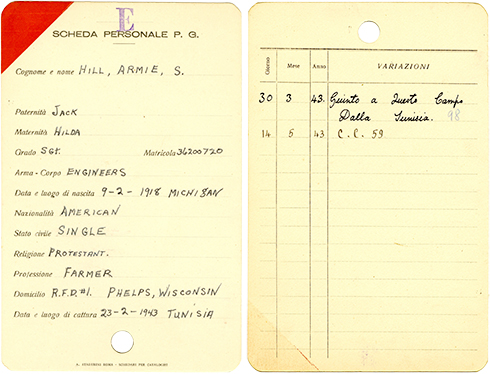 E
SCHEDA PERSONALE P. G.
Cognome e nome HILL, ARMIE, S.
Paternità JACK
Maternità HILDA
Grado SGT. Matricola 36200720
Arma - Corpo ENGINEERS
Data e luogo di nascita 9-2-1918 MICHIGAN
Nazionalità AMERICAN
Stato civile SINGLE
Religione PROTESTANT.
Professione FARMER
Domicilio R.F.D.#1. PHELPS, WISCONSIN
Data e luogo di cattura 23-2-1943 TUNISIA
Giorno Mese Anno VARIAZIONI
30 3 43. Giunto a Questo Campo
Dalla Tunisia. 98
14 5 43 C.C. 59